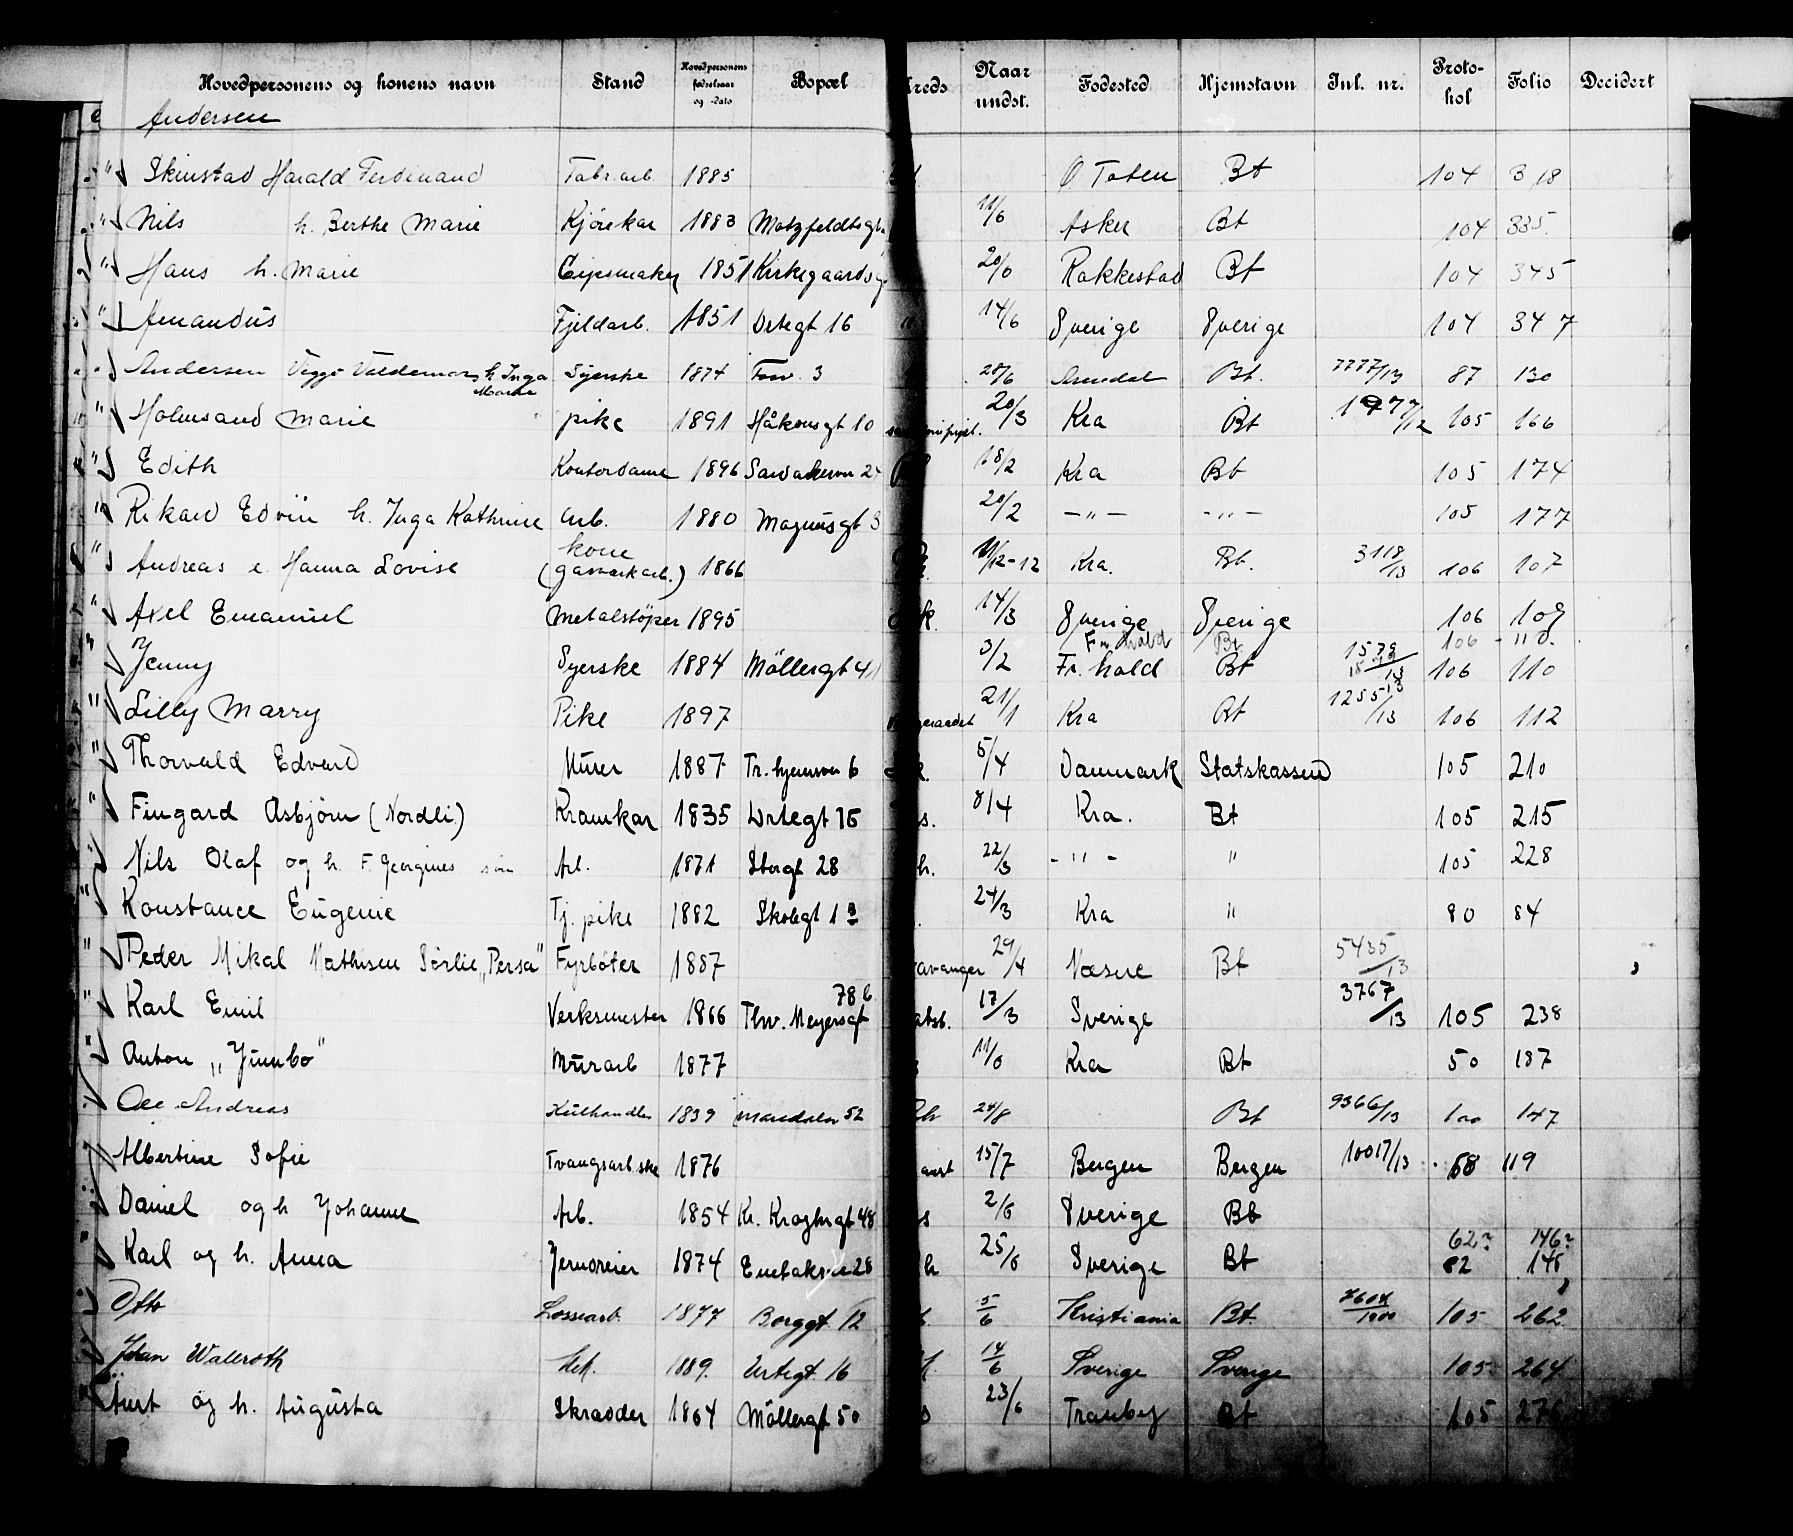 Hovedpersonens og konens navn Stand Hovedpersonens fødselsaar og -dato Bopæl Kreds Naar undst. Fødested Hjemstavn Jnl. nr. Protokol Folio Decidert
Andersen
" Skinstad Harald Ferdinand Fabr.arb. 1885 Ø Toten Bt 104 318
" Nils h. Berthe Marie Kjørekar 1883 Motzfeldtsgt 11/6 Asker Bt 104 335.
" Hans h. Marie Gipsmaker 1851 Kirkegaardsg 20/6 Rakkestad Bt 104 345
" Amandus Fjeldarb. 1851 Urtegt 16 14/6 Sverige Sverige 104 347
" Andersen Viggo Valdemars h Inga Marie Syerske 1874 Fossv. 3 28/6 Arendal Bt. 7777/13 87 130
" Holmsand Marie pike 1891 Håkonsgt 10 20/3 Kra Bt 1977/12 105 166
" Edith Kontordame 1896 18/2 Kra Bt 105 174
" Rikard Edvin h. Inga Kathrine arb. 1880 Magnusgt 3 20/2 - " - - " - 105 177
" Andreas e. Hanna Lovise kone (gasverkarb.) 1866 11/12-12 Kra. Bt. 3118/13 106 107
" Axel Emanuel Metalstöper 1895 k. 14/3 Sverige Sverige 106 109
Fr. hald Bt 106 - 110.
" Jenny Syerske 1884 Möllergt 41 3/2 Fr. hald Bt 1579/13 106 110
" Lilly Marry Pike 1897 21/1 Kra Bt 1255/13 106 112
" Thorvald Edvard Murer 1887 Tr. hjemsvn 6 5/4 Danmark Statskassen 105 210
" Fingard Asbjörn (Nordli) Kramkar 1835 Urtegt 15 s. 8/4 Kra. Bt 105 215
" Nils Olaf og h. F. Georgines sön Arb. 1871 Storgt 28 h. 22/3 - " - " 105 228
" Konstance Eugenie Tj. pike 1882 Skolegt 13 24/3 Kra " 80 84
" Peder Mikal Mathisen Sörlie "Persa" Fyrböter 1887 avanger 29/4 Næsne Bt 5435/13
" Karl Emil Verksmester 1866 Thv. Meyersgt 78 b 17/3 Sverige 3767/13 105 238
" Anton "Jumbo" Murarb 1877 11/6 Kra Bt 50 187
Ole Andreas Kulhandler 1839 52 24/8 Bt 9366/13 100 147
Albertine Sofie Tvangsarb.ske 1876 anst 15/7 Bergen Bergen 10017/13 68 119
Daniel og h Johanne Arb. 1854 Kr. Kroghsgt 48 s 2/6 Sverige Bt
" Karl og h. Anna Jernoreier 1874 28 h 25/6 Sverige Bt 62? 146?
82 146
Otto Lossearb. 1877 Borggt. 12 5/6 Kristiania Bt. 7604/1900 105 262
Johan Wallroth 1889. Urtegt 16 14/6 Sverige Sverige 105 264
Aurt og h. Augusta Skrædder 1864 Möllergt 50 s 23/6 Tranby Bt 105 276